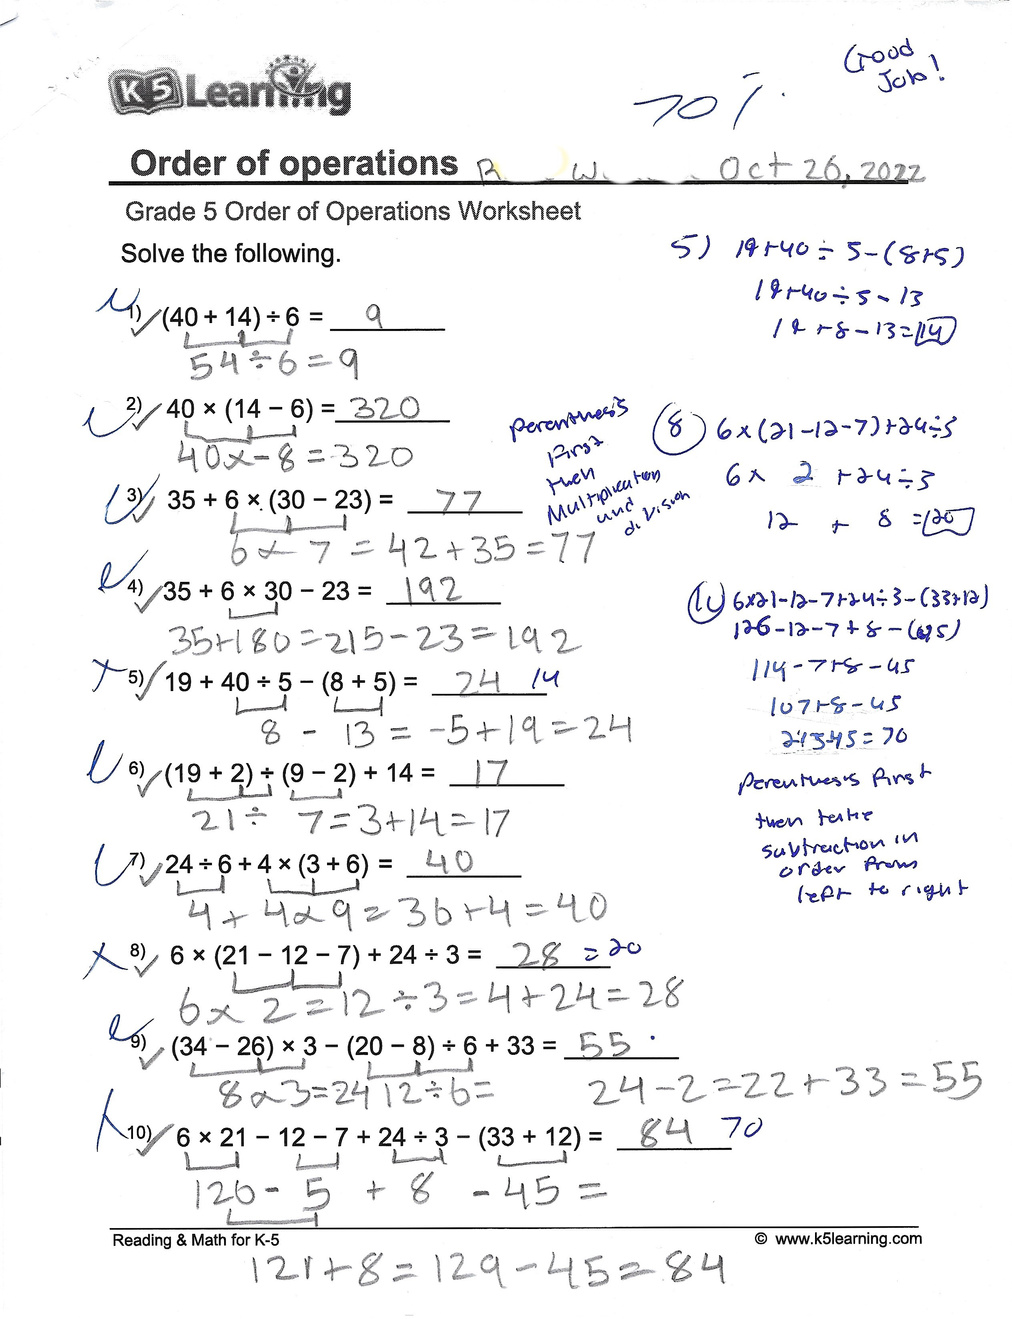 Good
Job!
K5 Learning
70%
Order of operations R W Oct 26, 2022
Grade 5 Order of Operations Worksheet
Solve the following.
1) (40 + 14) ÷ 6 = 9
54 ÷ 6 = 9
2) 40 × (14 − 6) = 320
40 x - 8 = 320
3) 35 + 6 × (30 − 23) = 77
6 x 7 = 42 + 35 = 77
4) 35 + 6 × 30 − 23 = 192
35 + 180 = 215 - 23 = 192
5) 19 + 40 ÷ 5 − (8 + 5) = 24 14
8 - 13 = -5 + 19 = 24
6) (19 + 2) ÷ (9 − 2) + 14 = 17
21 ÷ 7 = 3 + 14 = 17
7) 24 ÷ 6 + 4 × (3 + 6) = 40
4 + 4 x 9 = 36 + 4 = 40
8) 6 × (21 − 12 − 7) + 24 ÷ 3 = 28 = 20
6 x 2 = 12 ÷ 3 = 4 + 24 = 28
9) (34 − 26) × 3 − (20 − 8) ÷ 6 + 33 = 55
8 x 3 = 24 12 ÷ 6 = 24 - 2 = 22 + 33 = 55
10) 6 × 21 − 12 − 7 + 24 ÷ 3 − (33 + 12) = 84 70
126 - 5 + 8 - 45 =
Reading & Math for K-5
© www.k5learning.com
121 + 8 = 129 - 45 = 84
5) 19+40 ÷ 5-(8+5)
19+40÷5-13
19+8-13=14
Parenthesis
First
then
Multiplication
and
division
8 6x(21-12-7)+24÷3
6x 2 +24÷3
12 + 8 =20
10 6x21-12-7+24÷3-(33+12)
126-12-7+8-(45)
114-7+8-45
107+8-45
=70
Parenthesis First
then take
subtraction in
order from
left to right